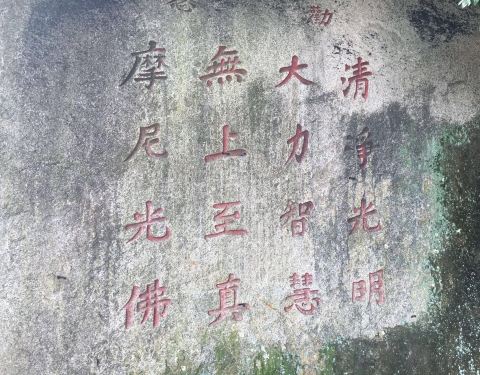 勸
清淨光明
大力智慧
無上至真
摩尼光佛